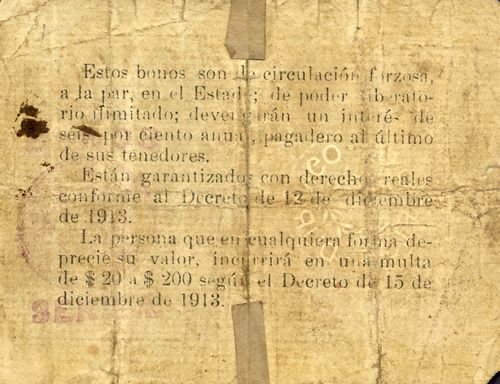 Estos bonos son de circulación forzosa,
a la par, en el Estado; de poder liberato-
rio ilimitado; devengarán un interés de
seis por ciento anual, pagadero al último
de sus tenedores.
Están garantizados con derechos reales
conforme al Decreto de 12 de diciembre
de 1913.
La persona que en cualquiera forma de-
precie su valor, incurrirá en una multa
de $ 20 a $ 200 según el Decreto de 15 de
diciembre de 1913.